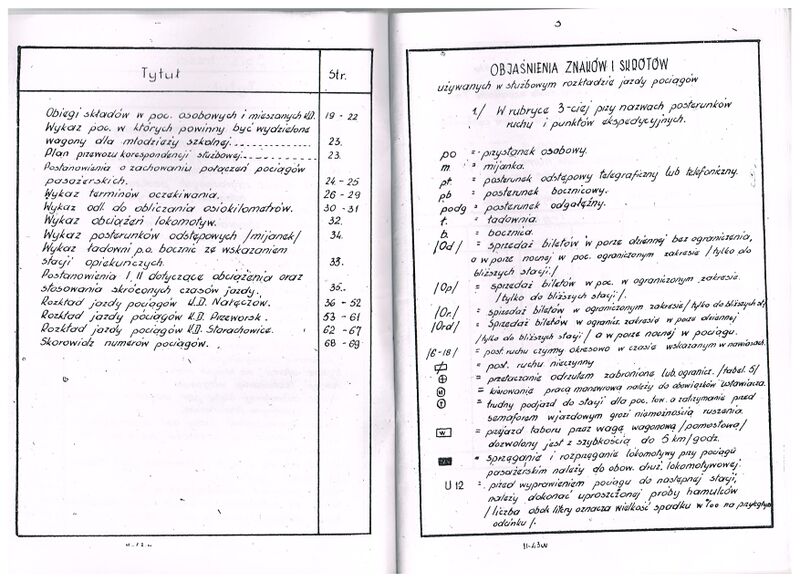 Tytuł
Str.
Obiegi składów w poc. osobowych i mieszanych K.D. 19 - 22
Wykaz poc. w których powinny być wydzielone
wagony dla młodzieży szkolnej. 23.
Plan przewozu korespondencji służbowej. 23.
Postanowienia o zachowaniu połączeń pociągów
pasażerskich. 24 - 25
Wykaz terminów oczekiwania. 26 - 29
Wykaz odl. do obliczania osiokilometrów. 30 - 31
Wykaz obciążeń lokomotyw. 32.
Wykaz posterunków odstępowych /mijanek/ 34.
Wykaz ładowni p.o. bocznic ze wskazaniem
stacji opiekuńczych. 33.
Postanowienia I, II dotyczące obciążenia oraz
stosowania skróconych czasów jazdy. 35.
Rozkład jazdy pociągów K.D. Nałęczów. 36 - 52
Rozkład jazdy pociągów K.D. Przeworsk. 53 - 61
Rozkład jazdy pociągów K.D. Starachowice. 62 - 67
Skorowidz numerów pociągów. 68 - 69
3
OBJAŚNIENIA ZNAKÓW I SKRÓTÓW
używanych w służbowym rozkładzie jazdy pociągów
1./ W rubryce 3-ciej przy nazwach posterunków
ruchu i punktów ekspedycyjnych.
po = przystanek osobowy.
m = mijanka.
pt. = posterunek odstępowy telegraficzny lub telefoniczny.
pb = posterunek bocznicowy.
podg = posterunek odgałęźny.
ł. = ładownia.
b. = bocznica.
/Od/ = sprzedaż biletów w porze dziennej bez ograniczenia,
a w porze nocnej w poc. ograniczonym zakresie /tylko do
bliższych stacji./
/Op/ = sprzedaż biletów w poc. w ograniczonym zakresie.
/tylko do bliższych stacji/.
/Or/ = sprzedaż biletów w ograniczonym zakresie/tylko do bliższych st/
/Ord/ = sprzedaż biletów w ogranicz. zakresie w porze dziennej
/tylko do bliższych stacji/ a w porze nocnej w pociągu.
/6-18/ = post. ruchu czynny okresowo w czasie wskazanym w nawiasach.
= post. ruchu nieczynny
= przetaczanie odrzutem zabronione lub ogranicz. /tabel. 5/
M = kierowanie pracą manewrową należy do obowiązków ustawiacza.
T = trudny podjazd do stacji dla poc. tow. a zatrzymanie przed
semaforem wjazdowym grozi niemożnością ruszenia.
W = przejazd taboru przez wagę wagonową /pomostową/
dozwolony jest z szybkością do 5 km/godz.
= sprzęganie i rozprzęganie lokomotywy przy pociągu
pasażerskim należy do obow. druż. lokomotywowej.
U 12 = przed wyprawieniem pociągu do następnej stacji,
należy dokonać uproszczonej próby hamulców
/liczba obok litery oznacza wielkość spadku w ‰ na przyległym
odcinku/.